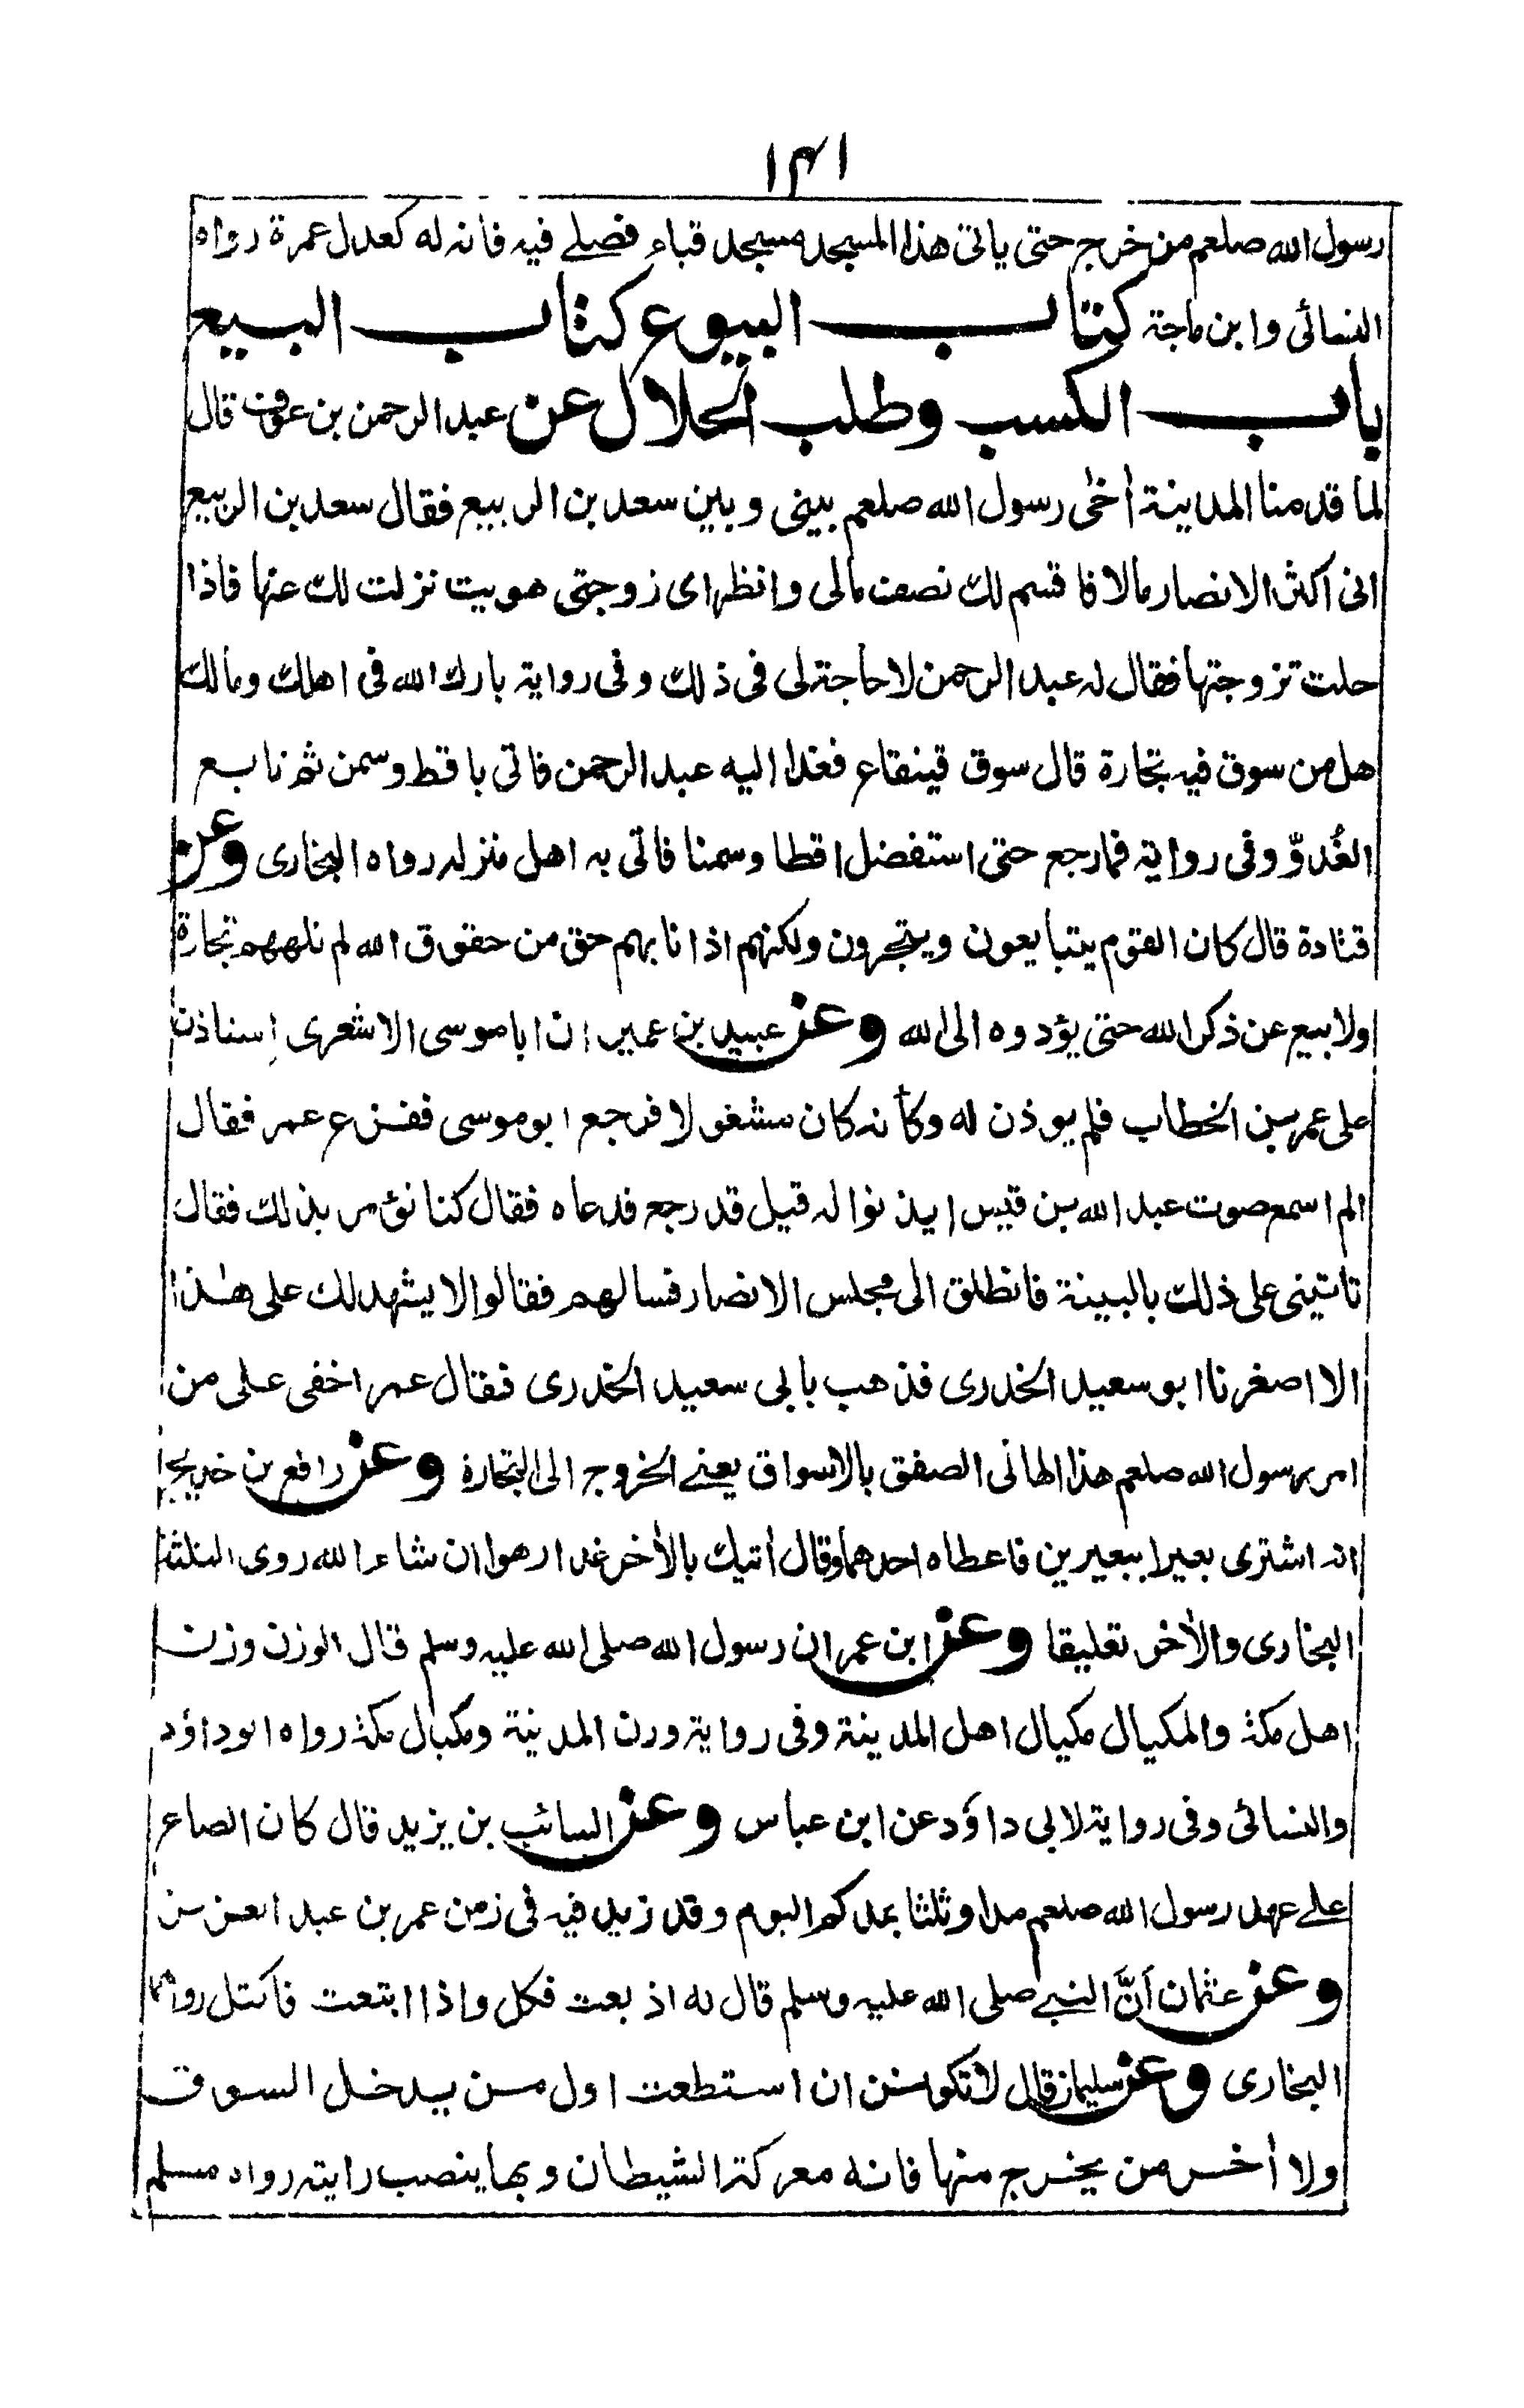 ١٤١
رسول الله صلعم من خرج حتى ياتى هذا المسجد مسجد قباء فصلے فيه فانه له كعدل عمرة رواه
النسائى وابن ماجة كتاب البيوع كتاب البيع
باب الكسب وطلب الحلال عن عبد الرحمن بن عوف قال
لما قدمنا المدينة أخى رسول الله صلعم بينى وبين سعد بن الربيع فقال سعد بن الربيع
انى اكثر الانصار مالا فاقسم لك نصف مالى وانظر اى زوجتى هويت نزلت لك عنها فاذا
حلت تزوجتها فقال له عبد الرحمن لا حاجة لى فى ذلك وفى رواية بارك الله فى اهلك ومالك
هل من سوق فيه تجارة قال سوق قينقاع فغدا اليه عبد الرحمن فاتى باقط وسمن ثم تابع
الغُدوّ وفى رواية فمارجع حتى استفضل اقطا وسمنا فاتى به اهل منزله رواه البخارى وعن
قتادة قال كان القوم يتبايعون ويتجرون ولكنهم اذا نابهم حق من حقوق الله لم تلههم تجارة
ولا بيع عن ذكر الله حتى يؤدوه الى الله وعن عبيد بن عمير ان ابا موسى الاشعرى استاذن
على عمر بن الخطاب فلم يوذن له وكأنه كان مشغولا فرجع ابوموسى ففزع عمر فقال
الم اسمع صوت عبد الله بن قيس ايذنوا له قيل قد رجع فدعاه فقال كنا نؤمر بذلك فقال
تاتينى على ذلك بالبينة فانطلق الى مجلس الانصار فسالهم فقالوا لا يشهد لك على هذا
الا اصغرنا ابو سعيد الخدرى فذهب بابى سعيد الخدرى فقال عمر اخفى على من
امر رسول الله صلعم هذا الهانى الصفق بالاسواق يعنے الخروج الى التجارة وعن رافع بن خديج
انه اشترى بعيرا ببعيرين فاعطاه احدهما وقال أتيك بالأخر غدا رهوا ان شاء الله روى الثلثة
البخارى والأخر تعليقا وعن ابن عمر ان رسول الله صلى الله عليه وسلم قال الوزن وزن
اهل مكة والمكيال مكيال اهل المدينة وفى رواية وزن المدينة ومكيال مكة رواه ابو داؤد
والنسائى وفى رواية لابى داؤد عن ابن عباس وعن السائب بن يزيد قال كان الصاع
علے عهد رسول الله صلعم مدا وثلثا بمدكم اليوم وقد زيد فيه فى زمن عمر بن عبد العزيز
وعن عثمان أنَّ النبے صلى الله عليه وسلم قال له اذ بعت فكل واذا ابتعت فاكتل رواهما
البخارى وعن سليمان قال لا تكونن ان استطعت اول من يدخل السوق
ولا أخر من يخرج منها فانه معركة الشيطان وبها ينصب رايته رواه مسلم